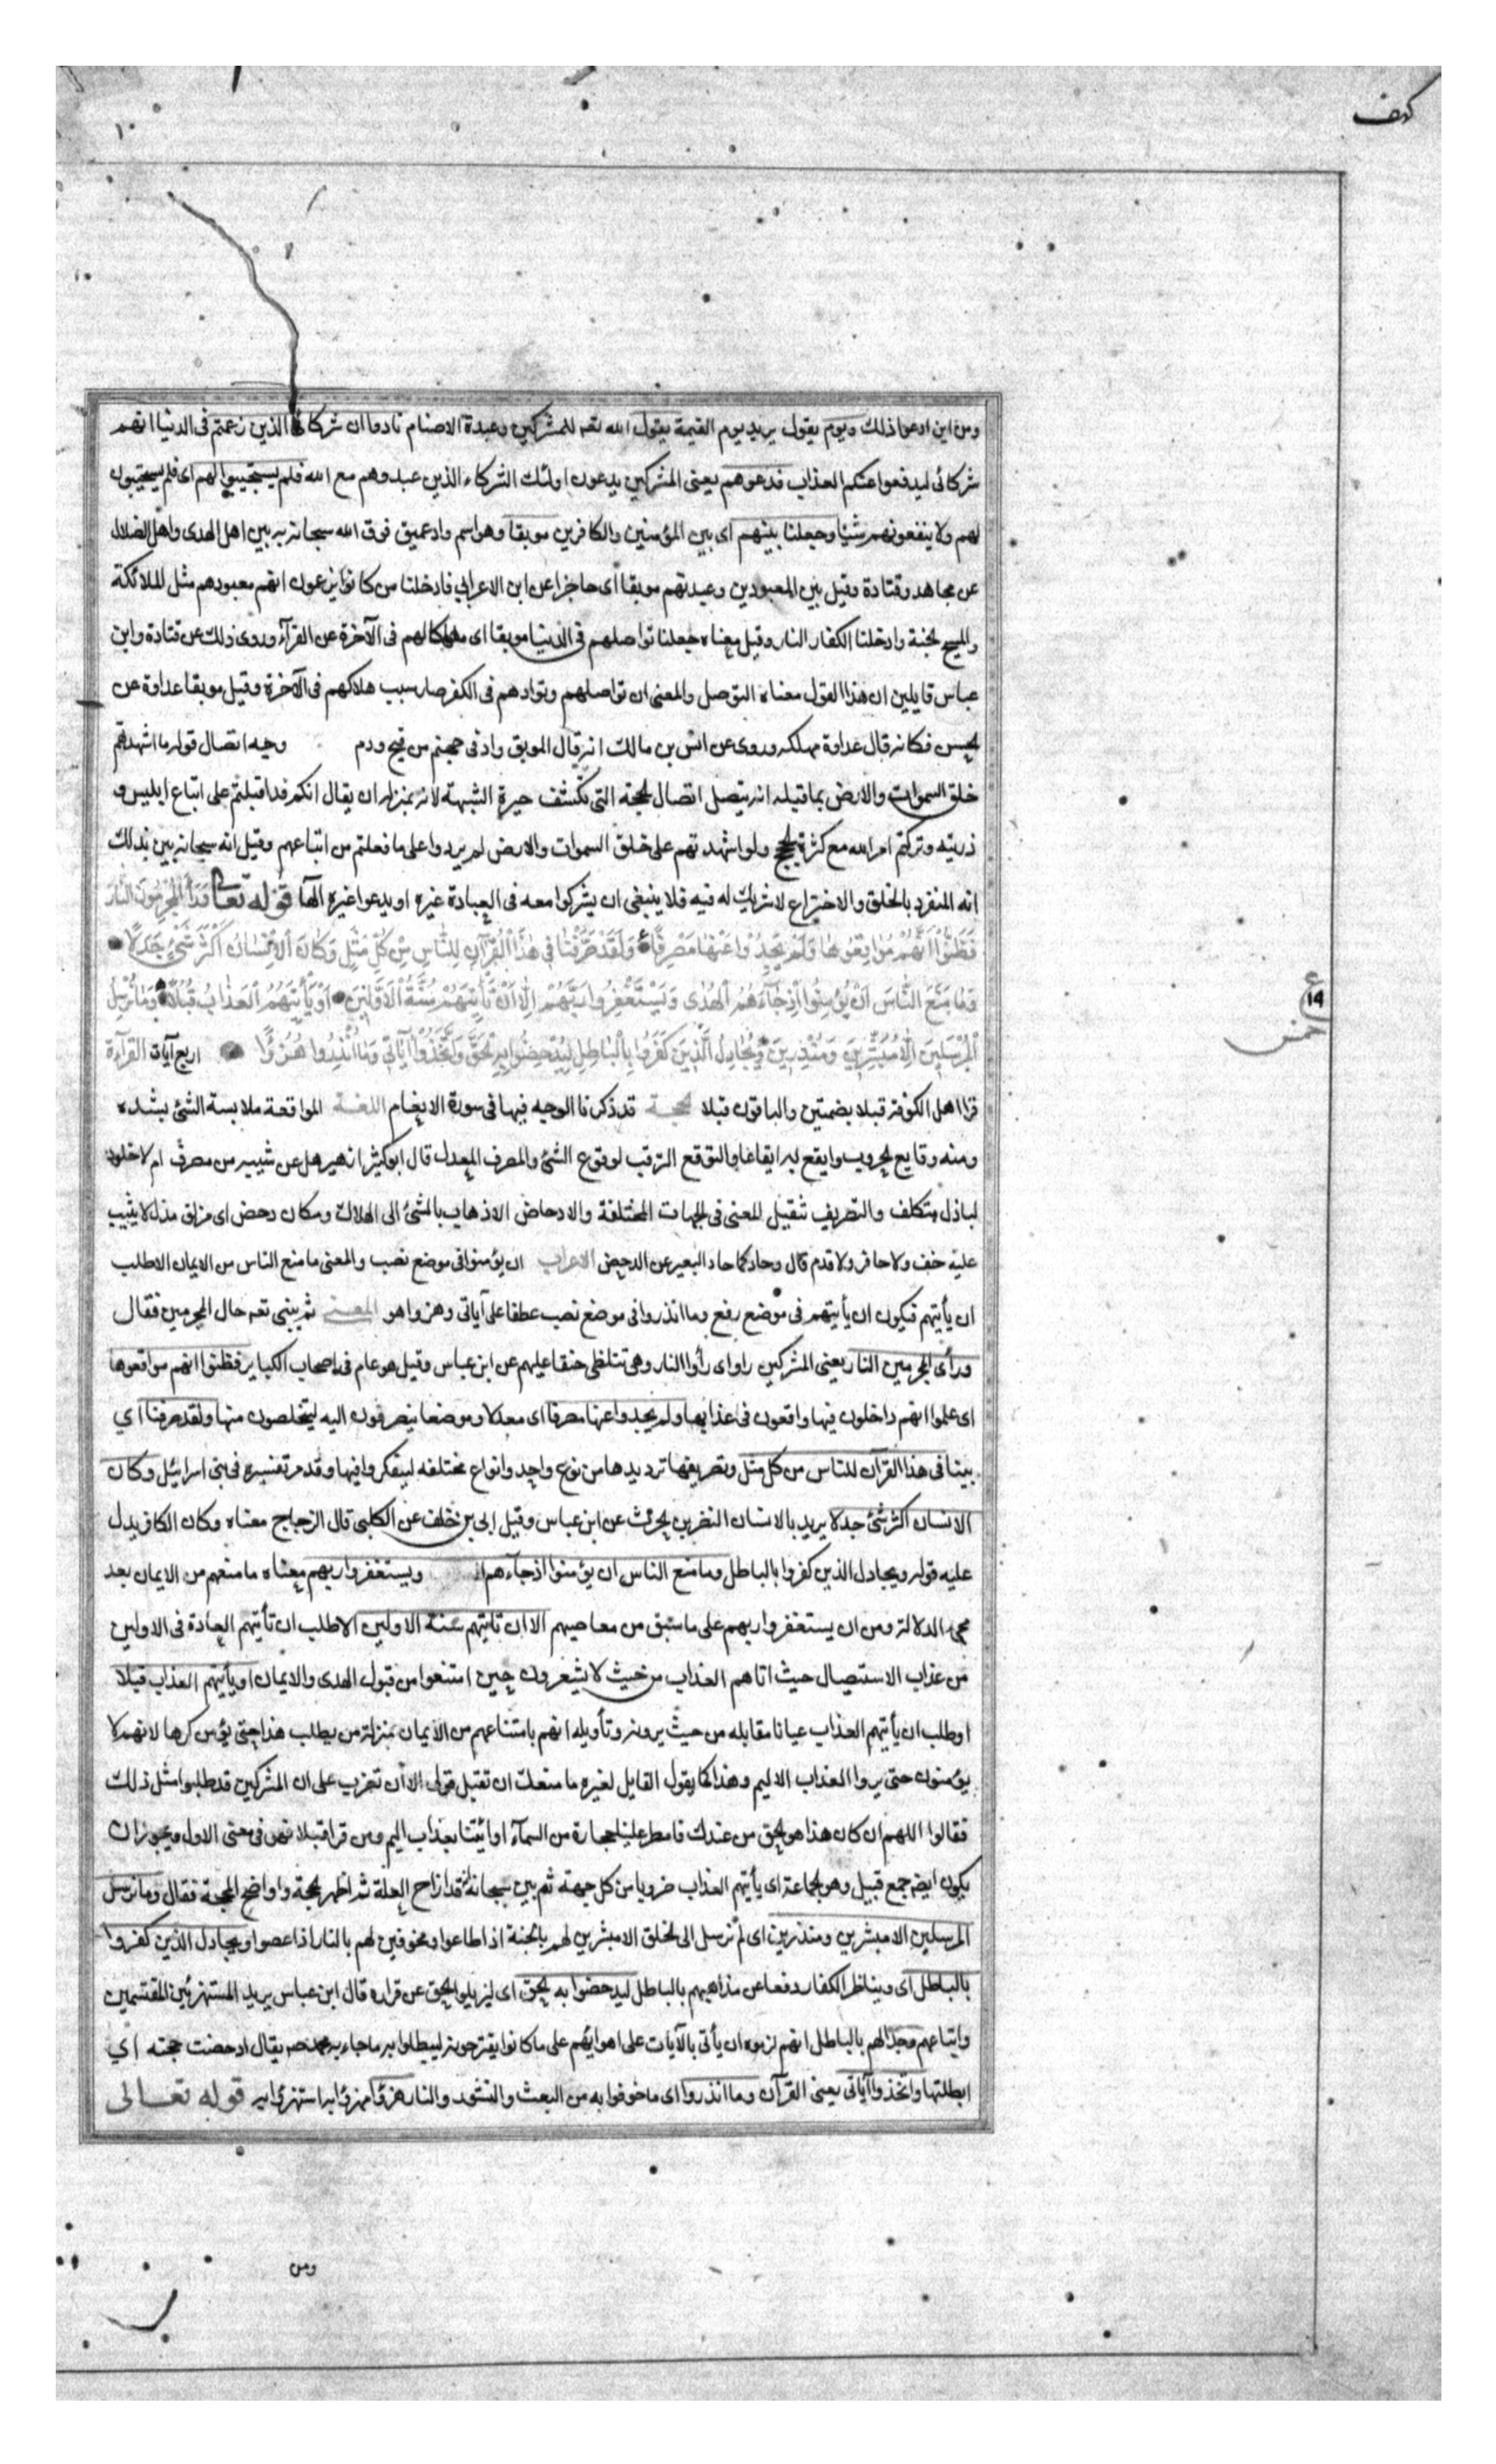 كهف
١٠
ومن اين ادعوا ذلك ويوم يقول يريد يوم القيمة يقول الله تعه للمشركين وعبدة الاصنام نادوا ان شركائى الذين زعمتم فى الدنيا انهم
شركائى ليدفعوا عنكم العذاب فدعوهم يعنى المشركين يدعون اولئك الشركاء الذين عبدوهم مع الله فلم يستجيبوا لهم اى فلم يستجيبون
لهم ولا ينفعونهم شيئا وجعلنا بينهم اى بين المؤمنين والكافرين موبقا وهو اسم واد عميق فرق الله سبحانه به بين اهل الهدى واهل الضلال
عن مجاهد وقتادة وقيل بين المعبودين وعبدتهم موبقا اى حاجزا عن ابن الاعرابي فادخلنا من كانوا يزعمون انهم معبودهم مثل الملائكة
والمسيح الجنة وادخلنا الكفار النار وقيل معناه جعلنا تواصلهم فى الدنيا موبقا اى مهلكا لهم فى الآخرة عن الفرآء وروى ذلك عن قتادة وابن
عباس قايلين ان هذا القول معناه التوصل والمعنى ان تواصلهم وتوادهم فى الكفر صار سبب هلاكهم فى الآخرة وقيل موبقا عداوة عن
الحسن فكانه قال عداوة مهلكه وروى عن انس بن مالك انه قال الموبق واد فى جهنم من قيح ودم وجه اتصال قوله ما اشهدتهم
خلق السموات والارض بما قبله انه يتصل اتصال الحجة التى تكشف حيرة الشبهة لانه بمنزلة ان يقال انكم قد اقبلتم على اتباع ابليس و
ذريته وتركتم امر الله مع كثرة الحجج ولو اشهدتهم على خلق السموات والارض لم يزيدوا على ما فعلتم من اتباعهم وقيل انه سبحانه بين بذلك
انه المنفرد بالخلق والاختراع لا شريك له فيه فلا ينبغى ان يشركوا معه فى العبادة غيره او يدعوا غيره الها قوله تعالى وَرَأَ الْمُجْرِمُونَ النَّارَ
فَظَنُّوا أَنَّهُمْ مُوَاقِعُوهَا وَلَمْ يَجِدُوا عَنْهَا مَصْرِفًا وَلَقَدْ صَرَّفْنَا فِي هَٰذَا الْقُرْآنِ لِلنَّاسِ مِنْ كُلِّ مَثَلٍ وَكَانَ الْإِنْسَانُ أَكْثَرَ شَيْءٍ جَدَلًا
وَمَا مَنَعَ النَّاسَ أَنْ يُؤْمِنُوا إِذْ جَاءَهُمُ الْهُدَى وَيَسْتَغْفِرُوا رَبَّهُمْ إِلَّا أَنْ تَأْتِيَهُمْ سُنَّةُ الْأَوَّلِينَ أَوْ يَأْتِيَهُمُ الْعَذَابُ قُبُلًا وَمَا نُرْسِلُ
الْمُرْسَلِينَ إِلَّا مُبَشِّرِينَ وَمُنْذِرِينَ وَيُجَادِلُ الَّذِينَ كَفَرُوا بِالْبَاطِلِ لِيُدْحِضُوا بِهِ الْحَقَّ وَاتَّخَذُوا آيَاتِي وَمَا أُنْذِرُوا هُزُوًا اربع آيات القرآءة
١٩
خمس
قرا اهل الكوفة قبلا بضمتين والباقون قبلا الحجة قد ذكرنا الوجه فيها فى سورة الانعام اللغة المواقعة ملابسة الشئ بشده
ومنه وقايع الحروب وايقع به ايقاعا والتوقع الترقب لوقوع الشئ والمصرف المعدل قال ابو كبير ازهير هل عن شيبه من مصرف ام لا خلود
لباذل متكلف والتصريف تنقيل المعنى فى الجهات المختلفة والادحاض الاذهاب بالشئ الى الهلاك ومكان دحض اى مزلق مذل لا يثبت
عليه خف ولا حافر ولا قدم قال وحاد كما حاد البعير عن الدحض الاعراب ان يؤمنوا فى موضع نصب والمعنى ما منع الناس من الايمان الا طلب
ان يأتيهم فيكون ان يأتيهم فى موضع رفع وما انذروا فى موضع نصب عطفا على آياتى وهزوا هو المعنى ثم بين تعه حال المجرمين فقال
ورأى المجرمين النار يعنى المشركين راوا اى رأوا النار وهى تتلظى حنقا عليهم عن ابن عباس وقيل هو عام فى اصحاب الكباير فظنوا انهم مواقعوها
اى علموا انهم داخلون فيها واقعون فى عذابها ولم يجدوا عنها مصرفا اى معدلا وموضعا ينصرفون اليه ليتخلصون منها ولقد صرفنا اي
بينا فى هذا القرآن للناس من كل مثل وتصريفها ترديدها من نوع واحد وانواع مختلفه ليتفكروا فيها وقد مر تفسيره فى بنى اسرائيل وكان
الانسان اكثر شئ جدلا يريد بالانسان النضر بن الحرث عن ابن عباس وقيل ابى بن خلف عن الكلبى قال الزجاج معناه وكان الكافر يدل
عليه قوله ويجادل الذين كفروا بالباطل وما منع الناس ان يؤمنوا اذ جاءهم ويستغفروا ربهم معناه ما منعهم من الايمان بعد
مجئ الدلالة ومن ان يستغفروا ربهم على ما سبق من معاصيهم الا ان تاتيهم سنة الاولين الا طلب ان تأتيهم العادة فى الاولين
من عذاب الاستيصال حيث اتاهم العذاب من حيث لا يشعرون حين امتنعوا من قبول الهدى والايمان او يأتيهم العذاب قبلا
او طلب ان يأتيهم العذاب عيانا مقابله من حيث يرونه وتأويله انهم بامتناعهم من الايمان بمنزلة من يطلب هذا حتى يؤمن كرها لانهم لا
يؤمنون حتى يروا العذاب الاليم وهذا كما يقول القايل لغيره ما منعك ان تقبل قولى الا ان تضرب على ان المشركين قد طلبوا مثل ذلك
فقالوا اللهم ان كان هذا هو الحق من عندك فامطر علينا حجارة من السمآء او ائتنا بعذاب اليم ومن قرا قبلا فهو فى معنى الاول ويجوز ان
يكون ايضه جمع قبيل وهو الجماعة اى يأتيهم العذاب ضروبا من كل جهة ثم بين سبحانه انه قد ازاح العلة ثم اظهر الحجة واواضح المحجة فقال وما نرسل
المرسلين الا مبشرين ومنذرين اى لم نرسل الى الخلق الا مبشرين لهم بالجنة اذ اطاعوا ومخوفين لهم بالنار اذا عصوا ويجادل الذين كفروا
بالباطل اى ويناظر الكفار دفعا عن مذاهبهم بالباطل ليدحضوا به الحق اى ليزيلوا الحق عن قراره قال ابن عباس يريد المستهزئين المقتسمين
واتباعهم وجدالهم بالباطل انهم لزموه ان يأتى بالآيات على اهوائهم على ما كانوا يقترحونه ليبطلوا به ما جاء به محمد صه يقال ادحضت حجته اي
ابطلتها واتخذوا آياتى يعنى القرآن وما انذروا اى ما خوفوا به من البعث والنشور والنار هزؤا مهزؤا به استهزؤا به قوله تعالى
ومن